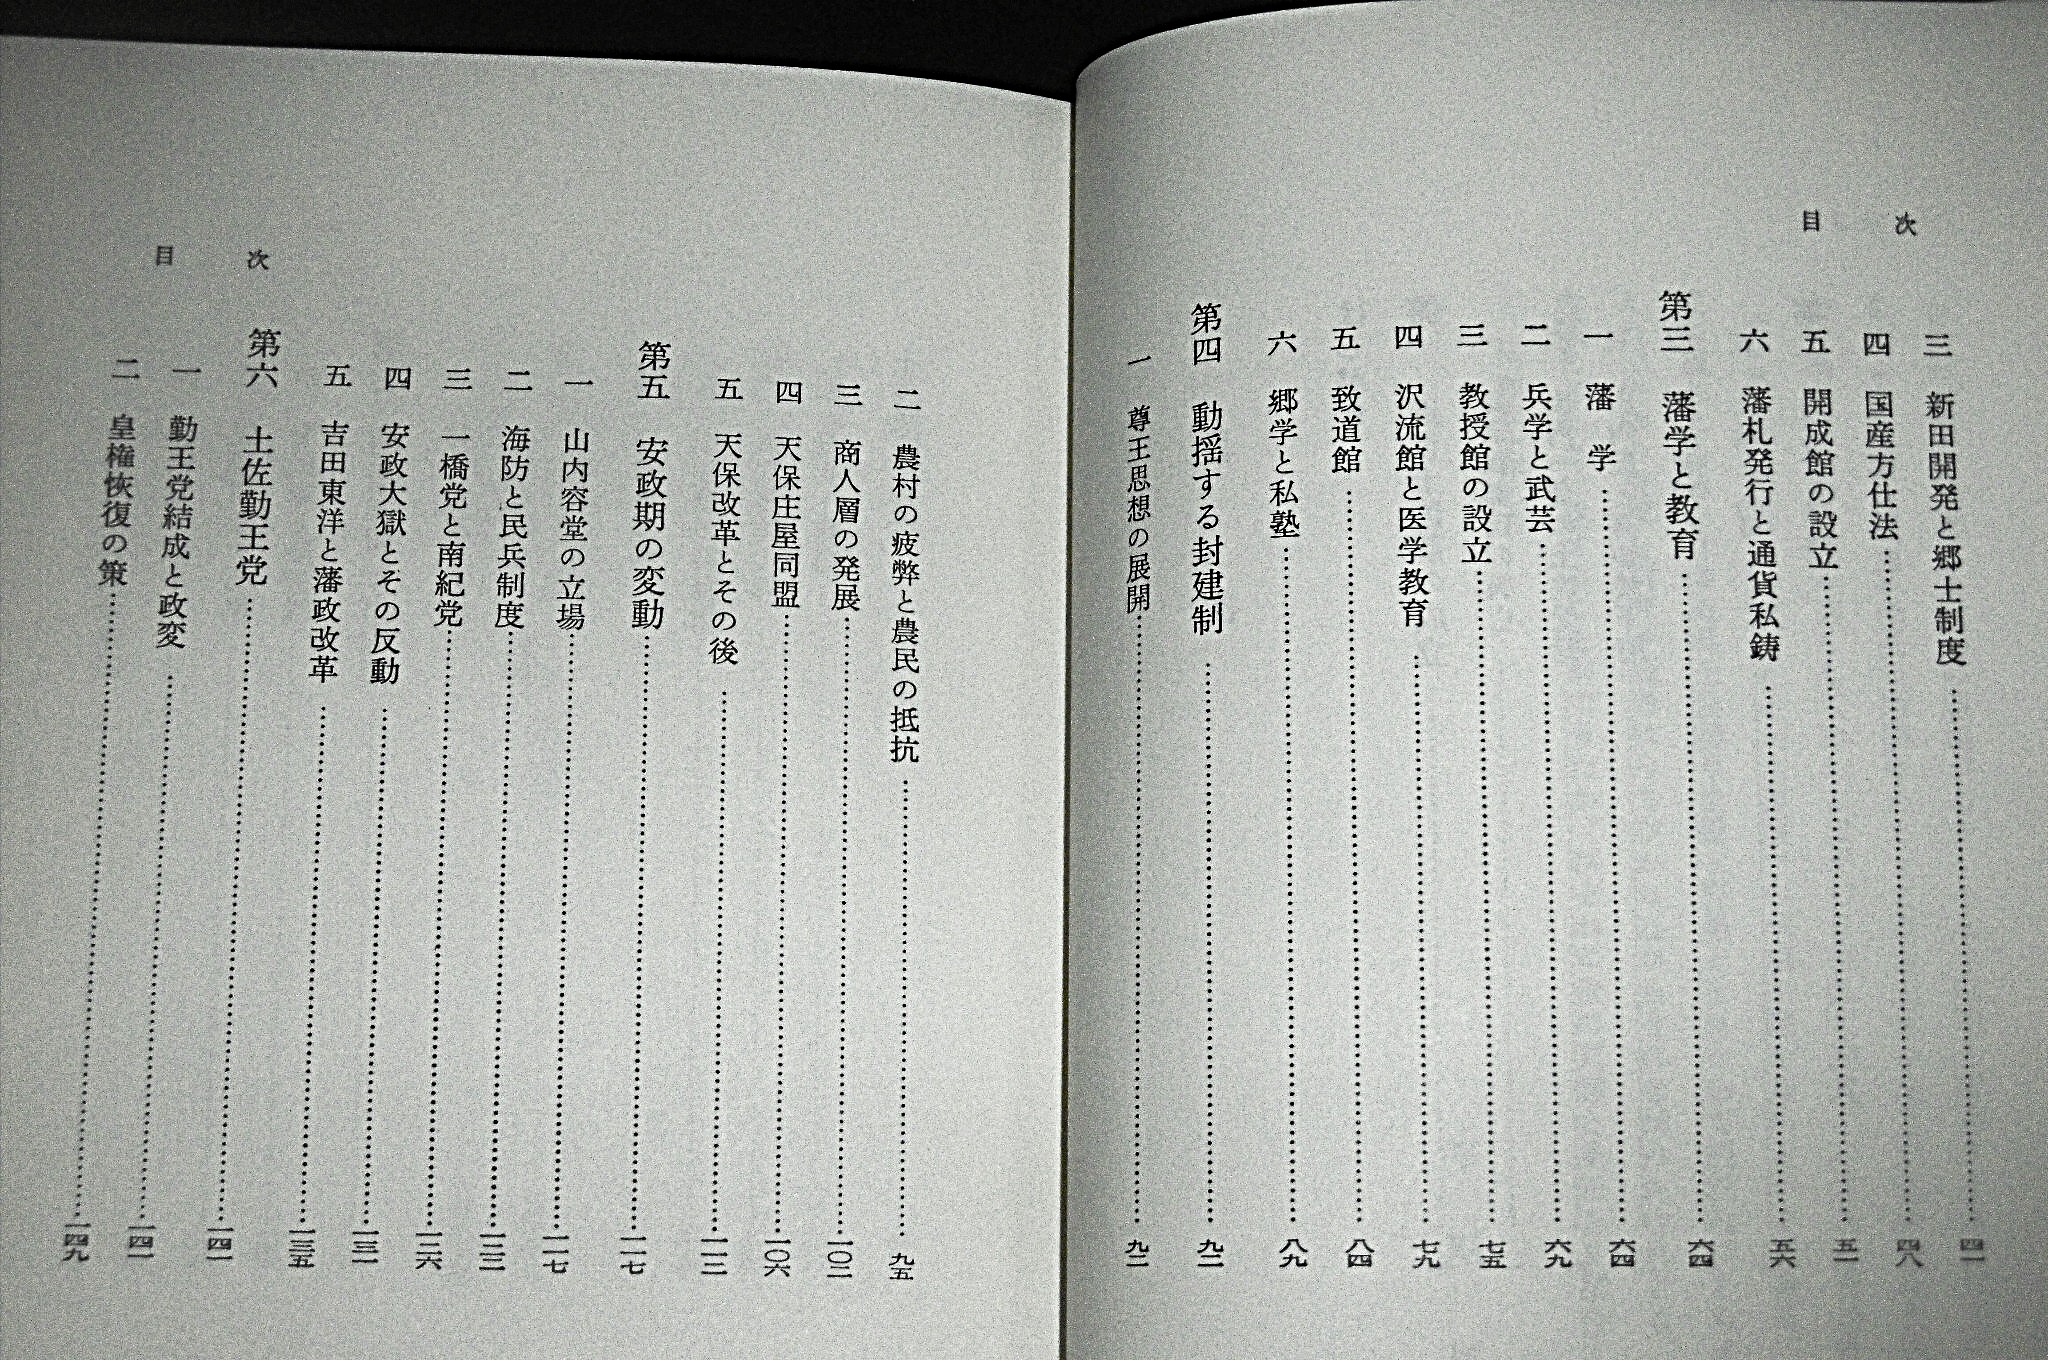 目次
三 新田開発と郷士制度……四一
四 国産方仕法……四八
五 開成館の設立……五一
六 藩札発行と通貨私鋳……五六
第三 藩学と教育……六四
一 藩学……六四
二 兵学と武芸……六九
三 教授館の設立……七五
四 沢流館と医学教育……七九
五 致道館……八四
六 郷学と私塾……八九
第四 動揺する封建制……九二
一 尊王思想の展開……九二
目次
二 農村の疲弊と農民の抵抗……九五
三 商人層の発展……一〇二
四 天保庄屋同盟……一〇六
五 天保改革とその後……一一三
第五 安政期の変動……一一七
一 山内容堂の立場……一一七
二 海防と民兵制度……一二三
三 一橋党と南紀党……一二六
四 安政大獄とその反動……一三一
五 吉田東洋と藩政改革……一三五
第六 土佐勤王党……一四一
一 勤王党結成と政変……一四一
二 皇権恢復の策……一四九